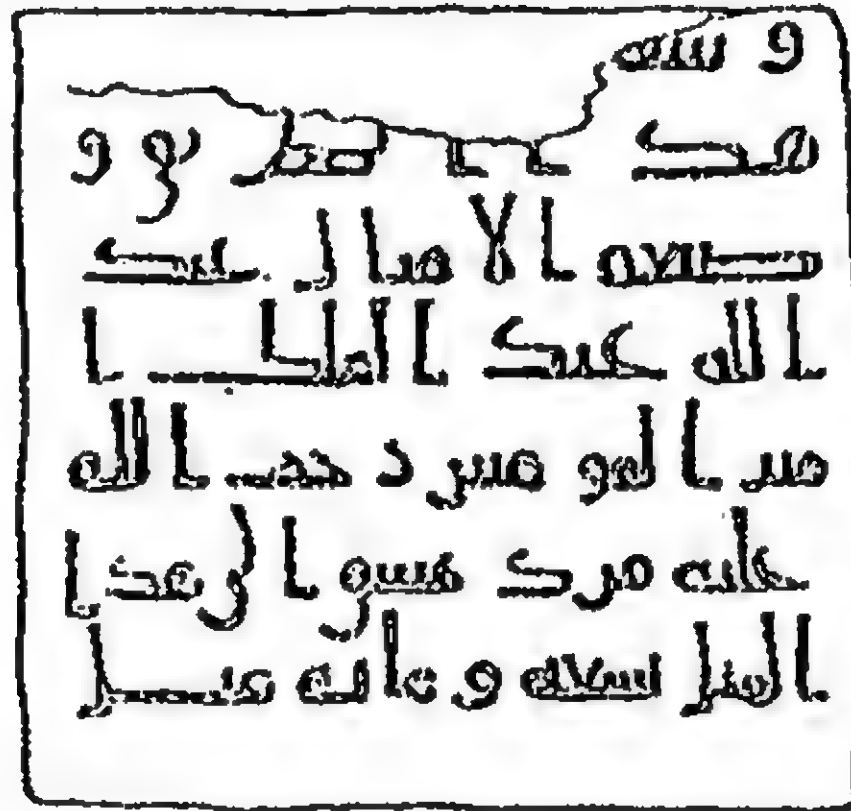 هذا الطريق و
صنعة الاميال عبد
الله عبد الملك ا
مير المومنين رحمت الله
عليه من دمشق الى هذا
الميل تسعة ومائة ميل